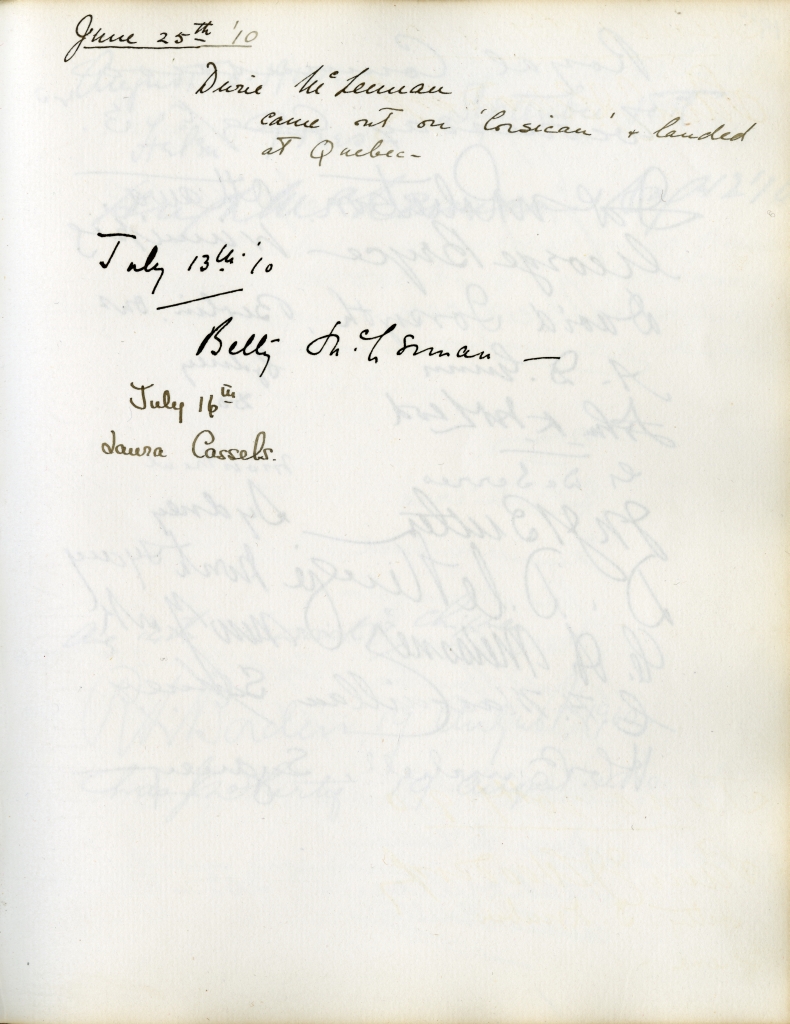 June 25th '10
Durie McLennan
came out on 'Corsican' + landed
at Quebec -
July 13th '10
Betty McLennan —
July 16th
Laura Cassels.